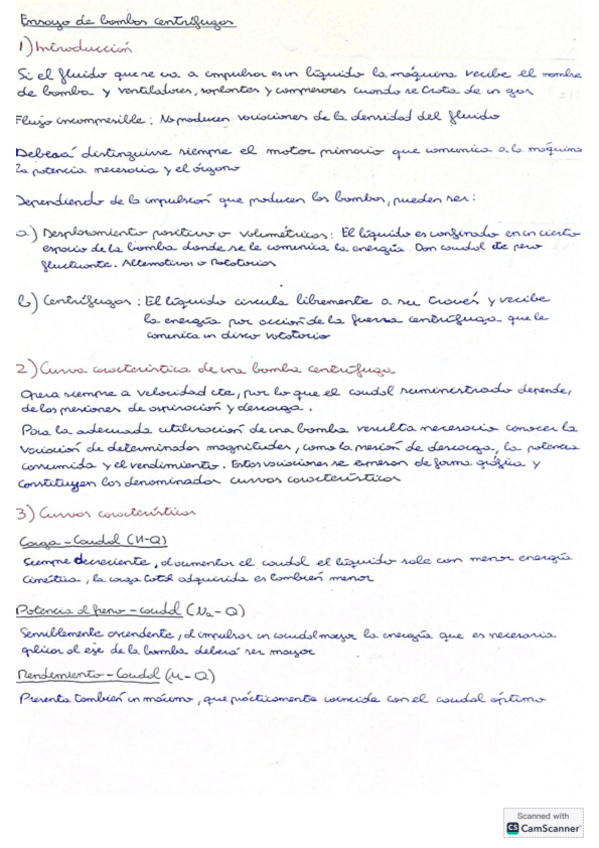 Ensayo de bombas centrífugas
1) Introducción
Si el fluido que se va a impulsar es un líquido la máquina recibe el nombre
de bomba y ventiladores, soplantes y compresores cuando se trata de un gas
Flujo incompresible: No producen variaciones de la densidad del fluido
Deberá distinguirse siempre el motor primario que comunica a la máquina
la potencia necesaria y el órgano
Dependiendo de la impulsión que producen las bombas, pueden ser:
a) Desplazamiento positivo o volumétricas: El líquido es confinado en un cierto
espacio de la bomba donde se le comunica la energía. Dan caudal cte pero
fluctuante. Alternativas o Rotatorias
b) Centrífugas: El líquido circula libremente a su través y recibe
la energía por acción de la fuerza centrífuga que le
comunica un disco rotatorio
2) Curva característica de una bomba centrífuga
Opera siempre a velocidad cte, por lo que el caudal suministrado depende,
de las presiones de aspiración y descarga.
Para la adecuada utilización de una bomba resulta necesario conocer la
variación de determinadas magnitudes, como la presión de descarga, la potencia
consumida y el rendimiento. Estas variaciones se expresan de forma gráfica y
constituyen las denominadas curvas características
3) Curvas características
Carga - Caudal (H-Q)
Siempre decreciente, al aumentar el caudal el líquido sale con menor energía
cinética, la carga total adquirida es también menor
Potencia al freno - caudal (Na - Q)
Sensiblemente ascendente, al impulsar un caudal mayor la energía que es necesaria
aplicar al eje de la bomba deberá ser mayor
Rendimiento - Caudal (η - Q)
Presenta también un máximo, que prácticamente coincide con el caudal óptimo
Scanned with
CS CamScanner